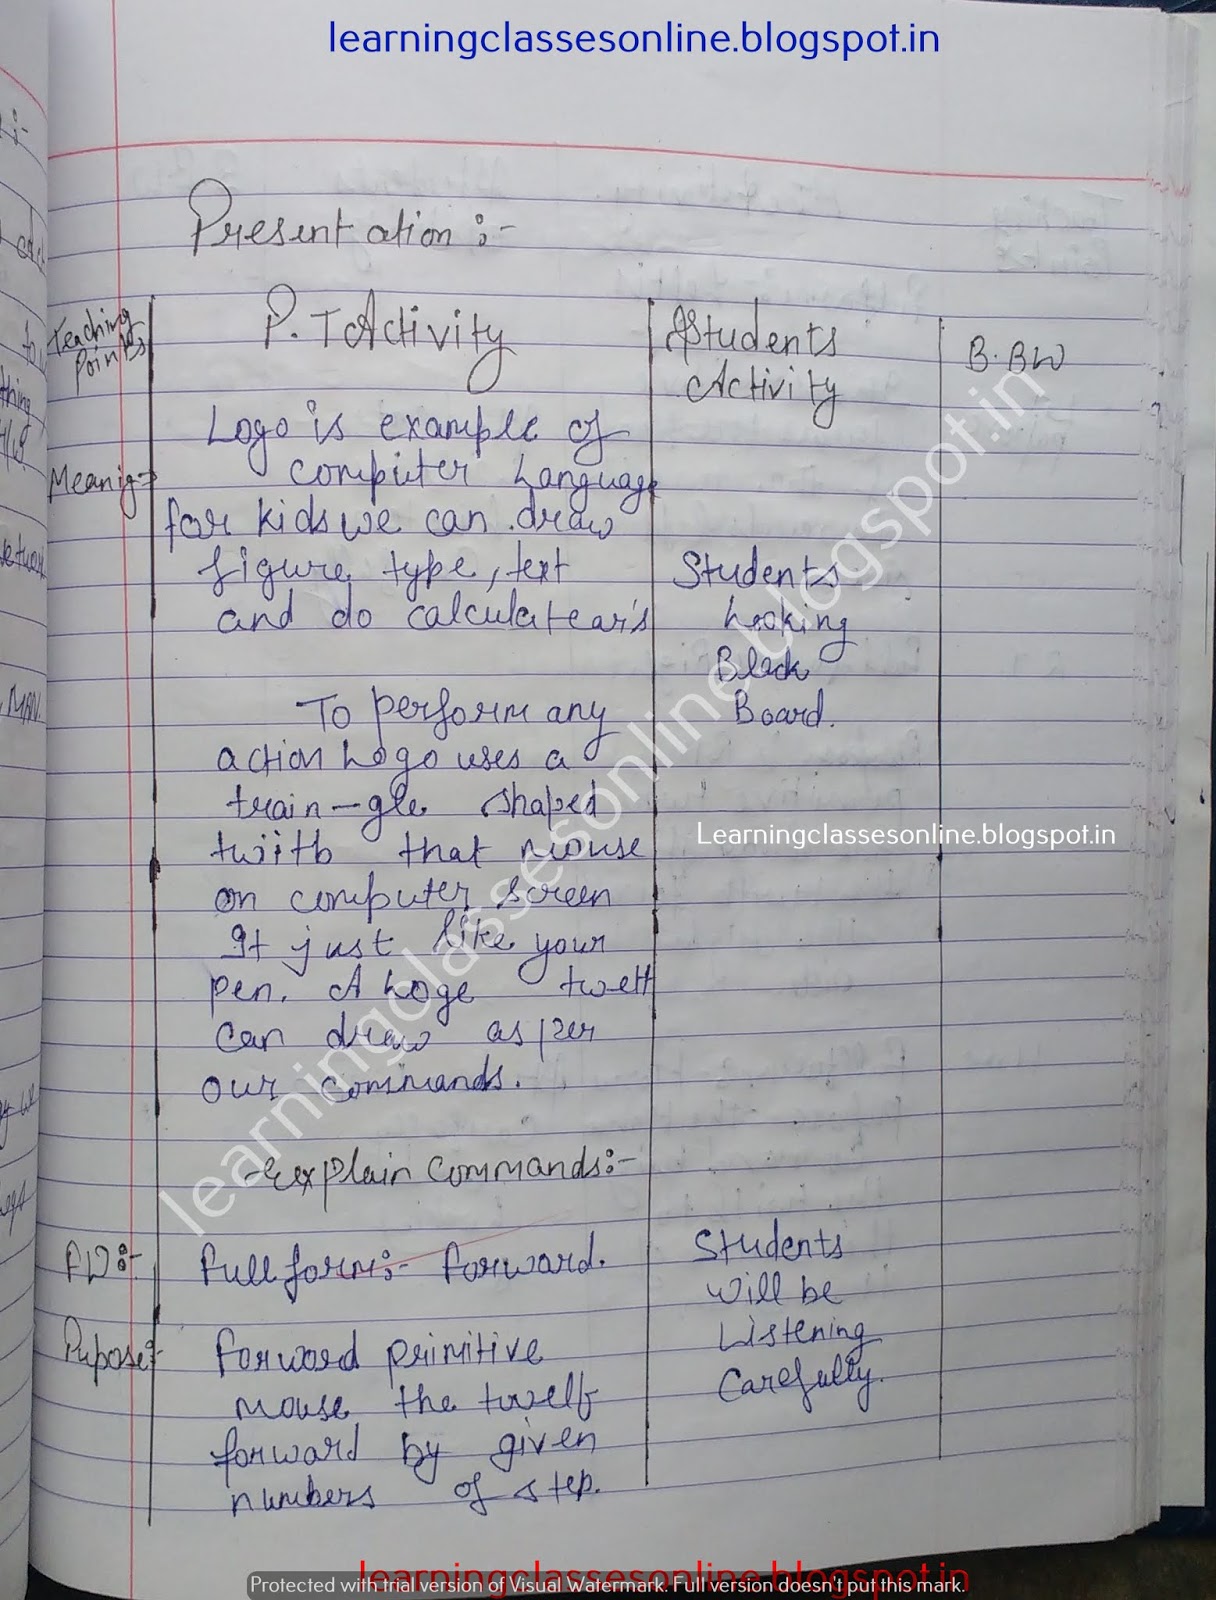 learningclassesonline.blogspot.in
Presentation :-
Teaching Points
P. T Activity
Students Activity
B. BW
Meanig:-
Logo is example of
computer Language
for kids we can draw
figure, type, text
and do calculatear's
Students
Looking
Black
Board.
To perform any
action Logo uses a
train-gle shaped
that mouse
on computer screen
It just like your
pen. A Loge
can draw as per
our commands.
Learningclassesonline.blogspot.in
learningclassesonline.blogspot.in
Explain Commands:-
FD:-
Full form:- Forward.
Students
will be
Listening
Carefully.
Pupose:-
Forword primitive
mouse the
forward by given
numbers of step.
learningclassesonline.blogspot.in
Protected with trial version of Visual Watermark. Full version doesn't put this mark.